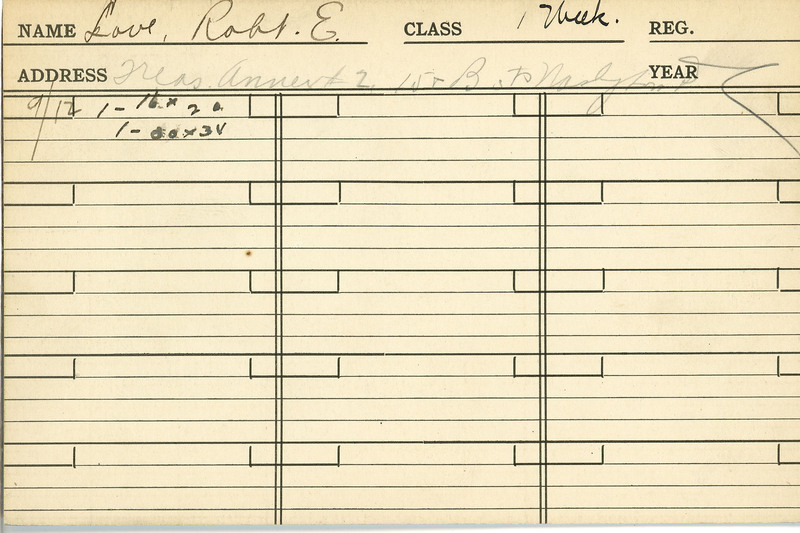 NAME Love, Robt. E. CLASS 1 Week. REG.
ADDRESS Treas. Annex # 2 15 B YEAR
9/12 1 - 16 x 20
1 - x 3